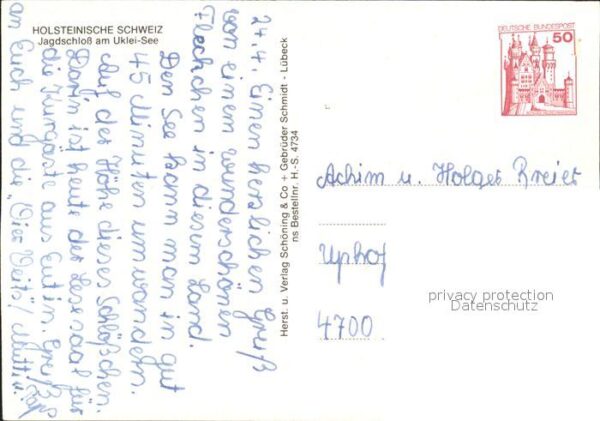 HOLSTEINISCHE SCHWEIZ
Jagdschloß am Uklei-See
24.4. Einen herzlichen Gruß
von einem wunderschönen
Fleckchen in diesem Land.
Den See kann man in gut
45 Minuten umwandern.
Auf der Höhe dieses Schlößchen.
Darin ist heute der Lesesaal für
die Kurgäste aus Eutin. Grüße
an Euch und die "Vier Veits"/
Herst. u. Verlag Schöning & Co + Gebrüder Schmidt - Lübeck
ns Bestellnr. H.-S. 4734
DEUTSCHE BUNDESPOST
50
Achim u. Holger Breier
Uphof
4700
privacy protection
Datenschutz